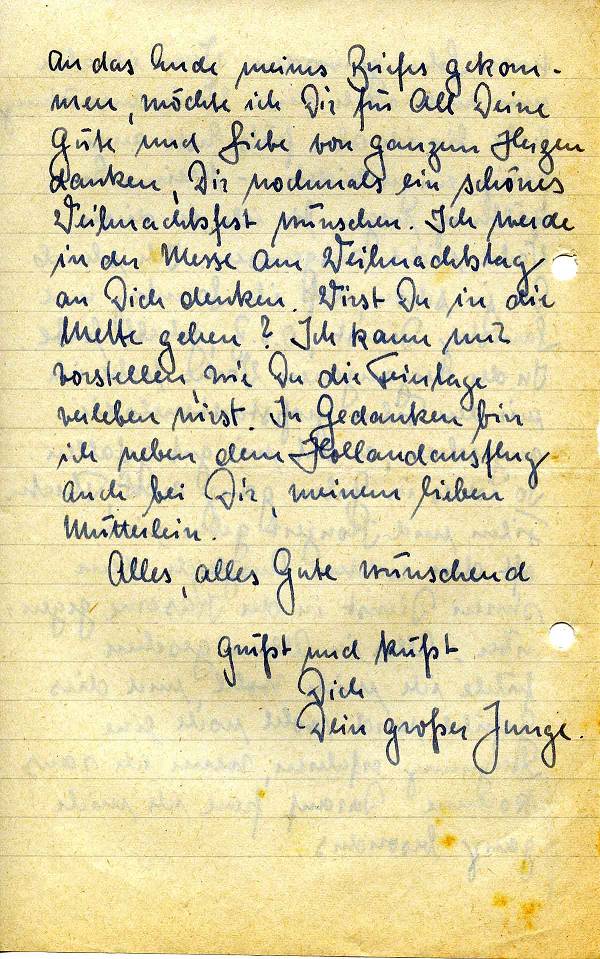 an das Ende meines Briefes gekom-
men, möchte ich Dir für all Deine
Güte und Liebe von ganzem Herzen
danken, Dir nochmals ein schönes
Weihnachtsfest wünschen. Ich werde
in der Messe am Weihnachtstag
an Dich denken. Wirst Du in die
Mette gehen? Ich kann mir
vorstellen, wie Du die Feiertage
verleben wirst. In Gedanken bin
ich neben dem Hollandausflug
auch bei Dir, meinem lieben
Mütterlein.
Alles, alles Gute wünschend
grüßt und küßt
Dich
Dein großer Junge.